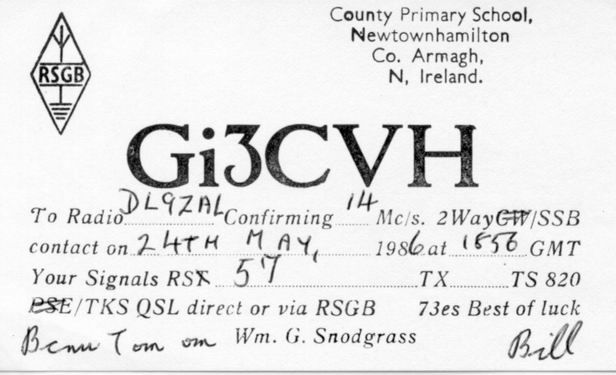 County Primary School,
Newtownhamilton
Co. Armagh,
N, Ireland.
RSGB
Gi3CVH
To Radio DL9ZAL Confirming 14 Mc/s. 2Way CW/SSB
contact on 24TH MAY, 1986 at 1856 GMT
Your Signals RST 57 TX TS 820
PSE/TKS QSL direct or via RSGB 73es Best of luck
Tom om Wm. G. Snodgrass Bill